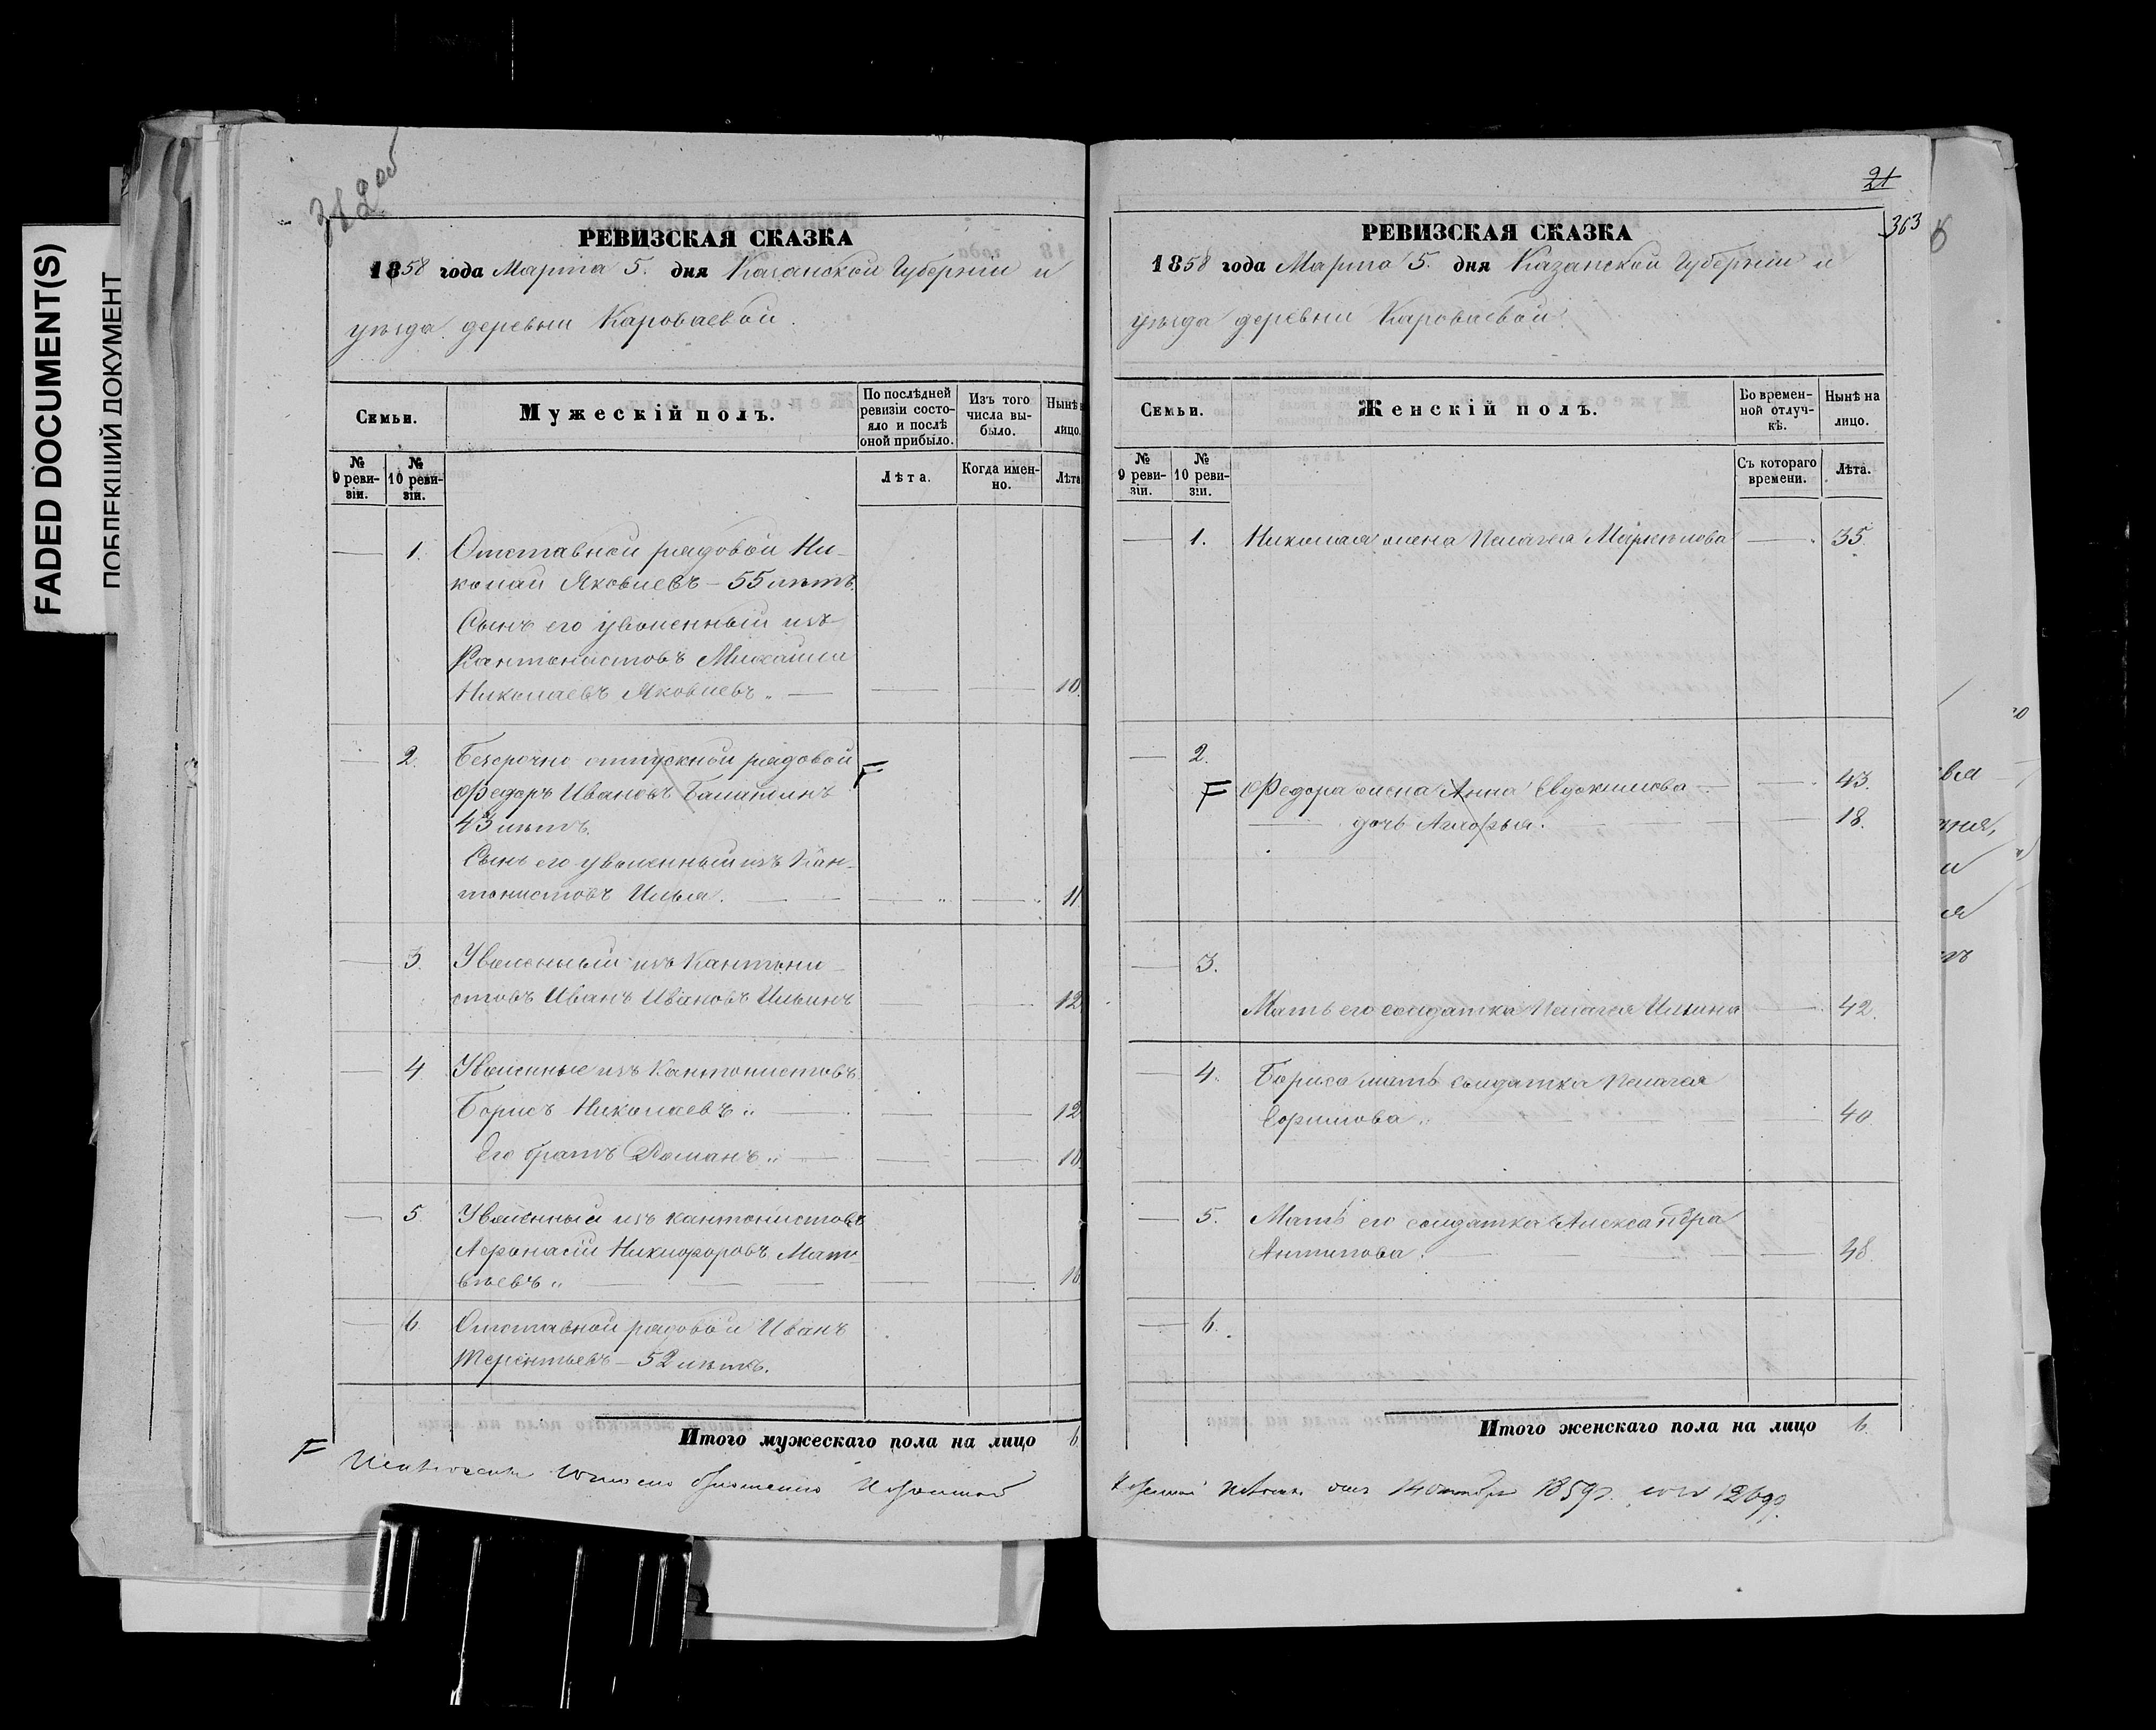 FADED DOCUMENT(S)
ПОБЛЕКШИЙ ДОКУМЕНТ
362 об
РЕВИЗСКАЯ СКАЗКА
1858 года Марта 5. дня Казанской Губерніи и
уѣзда деревни Кароваевой.
Семьи.
Мужескій полъ.
По послѣдней ревизіи состояло и послѣ оной прибыло.
Изъ того числа выбыло.
Нынѣ на лицо.
№ 9 ревизіи.
№ 10 ревизіи.
Лѣта.
Когда именно.
Лѣта
1. Отставной рядовой Ни-
колай Яковлевъ — 55 лѣтъ.
Сынъ его уволенный изъ
Кантонистовъ Михайла
Николаевъ Яковлевъ — 10.
2. Безсрочно отпускной рядовой F
Федоръ Ивановъ
43 лѣтъ.
Сынъ его уволенный изъ Кан-
тонистовъ Илья. 11
3. Уволенный изъ Кантони-
стовъ Иванъ Ивановъ Ильинъ 12
4 Уволенные изъ Кантонистовъ
Борисъ Николаевъ 12
Его братъ Романъ 10.
5. Уволенный изъ кантонистовъ
Афонасій Никифоровъ Мат-
вѣевъ 10
6 Отставной рядовой Иванъ
Терентьевъ — 52 лѣтъ.
Итого мужескаго пола на лицо 6
F
21
363
РЕВИЗСКАЯ СКАЗКА
1858 года Марта 5. дня Казанской Губерніи и
уѣзда деревни Кароваевой.
Семьи.
Женскій полъ.
Во временной отлучкѣ.
Нынѣ на лицо.
№ 9 ревизіи.
№ 10 ревизіи.
Съ котораго времени.
Лѣта.
1. Николая жена Пелагея 35.
2.
F Федора жена Анна Евдокимова 43.
дочь 18.
3.
Мать его солдатка Пелагея Ильина 42.
4. Бориса мать солдатка Пелагея
40
5. Мать его солдатка Александра
Антипова. 48.
6.
Итого женскаго пола на лицо 6.
14 октября 1859 г.